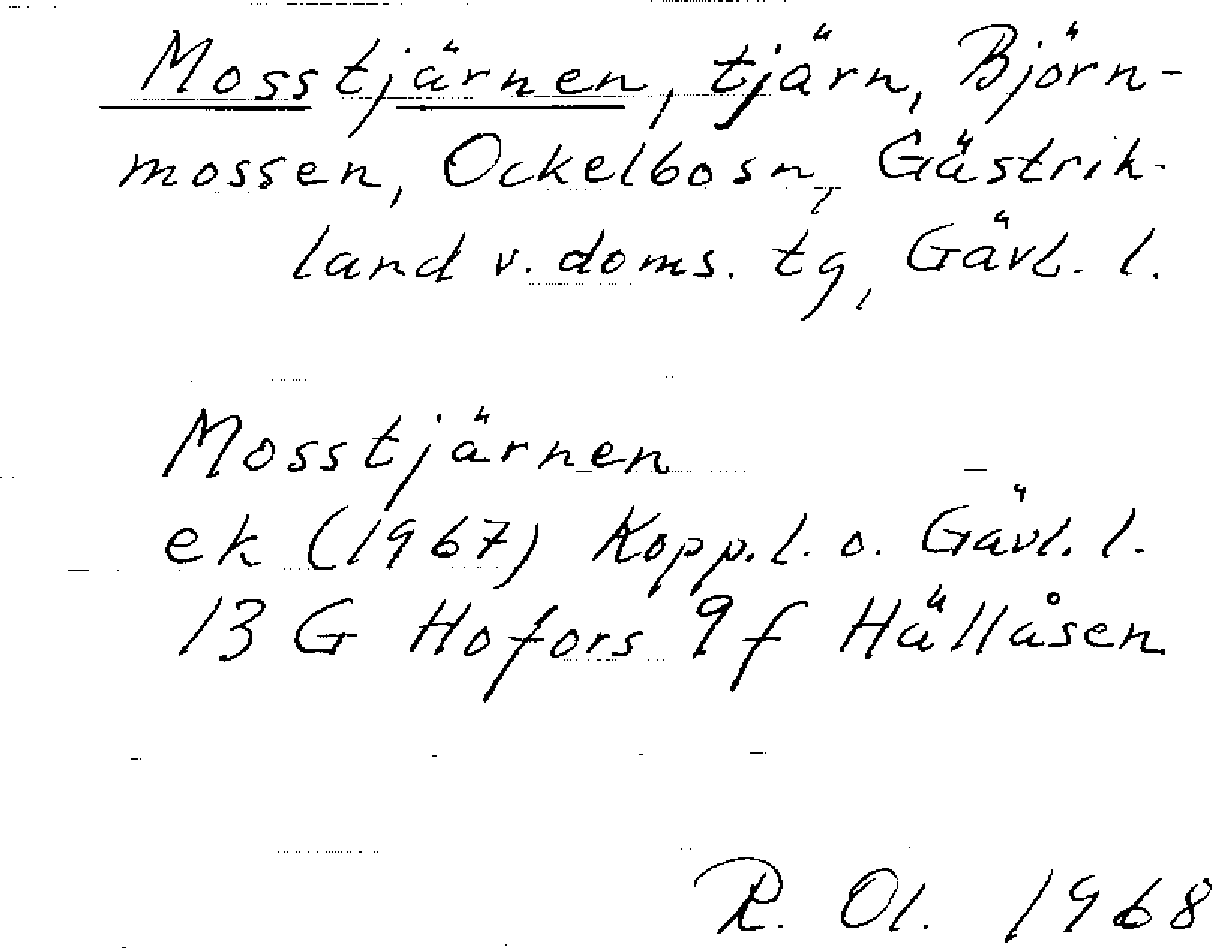 Mosstjärnen, tjärn, Björn-
mossen, Ockelbo sn, Gästrik-
land v. doms. tg, Gävl. l.
Mosstjärnen
ek (1967) Kopp. l. o. Gävl. l.
13 G Hofors 9 f Hällåsen
R. Ol. 1968